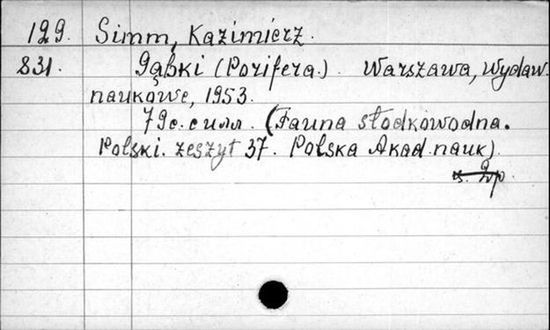 129. Simm, Kazimierz.
831. Gąbki (Porifera.) Warszawa, Wydaw.
naukowe, 1953.
79 с. с илл. (Fauna słodkowodna.
Polski. zeszyt 37. Polska Akad. nauk).